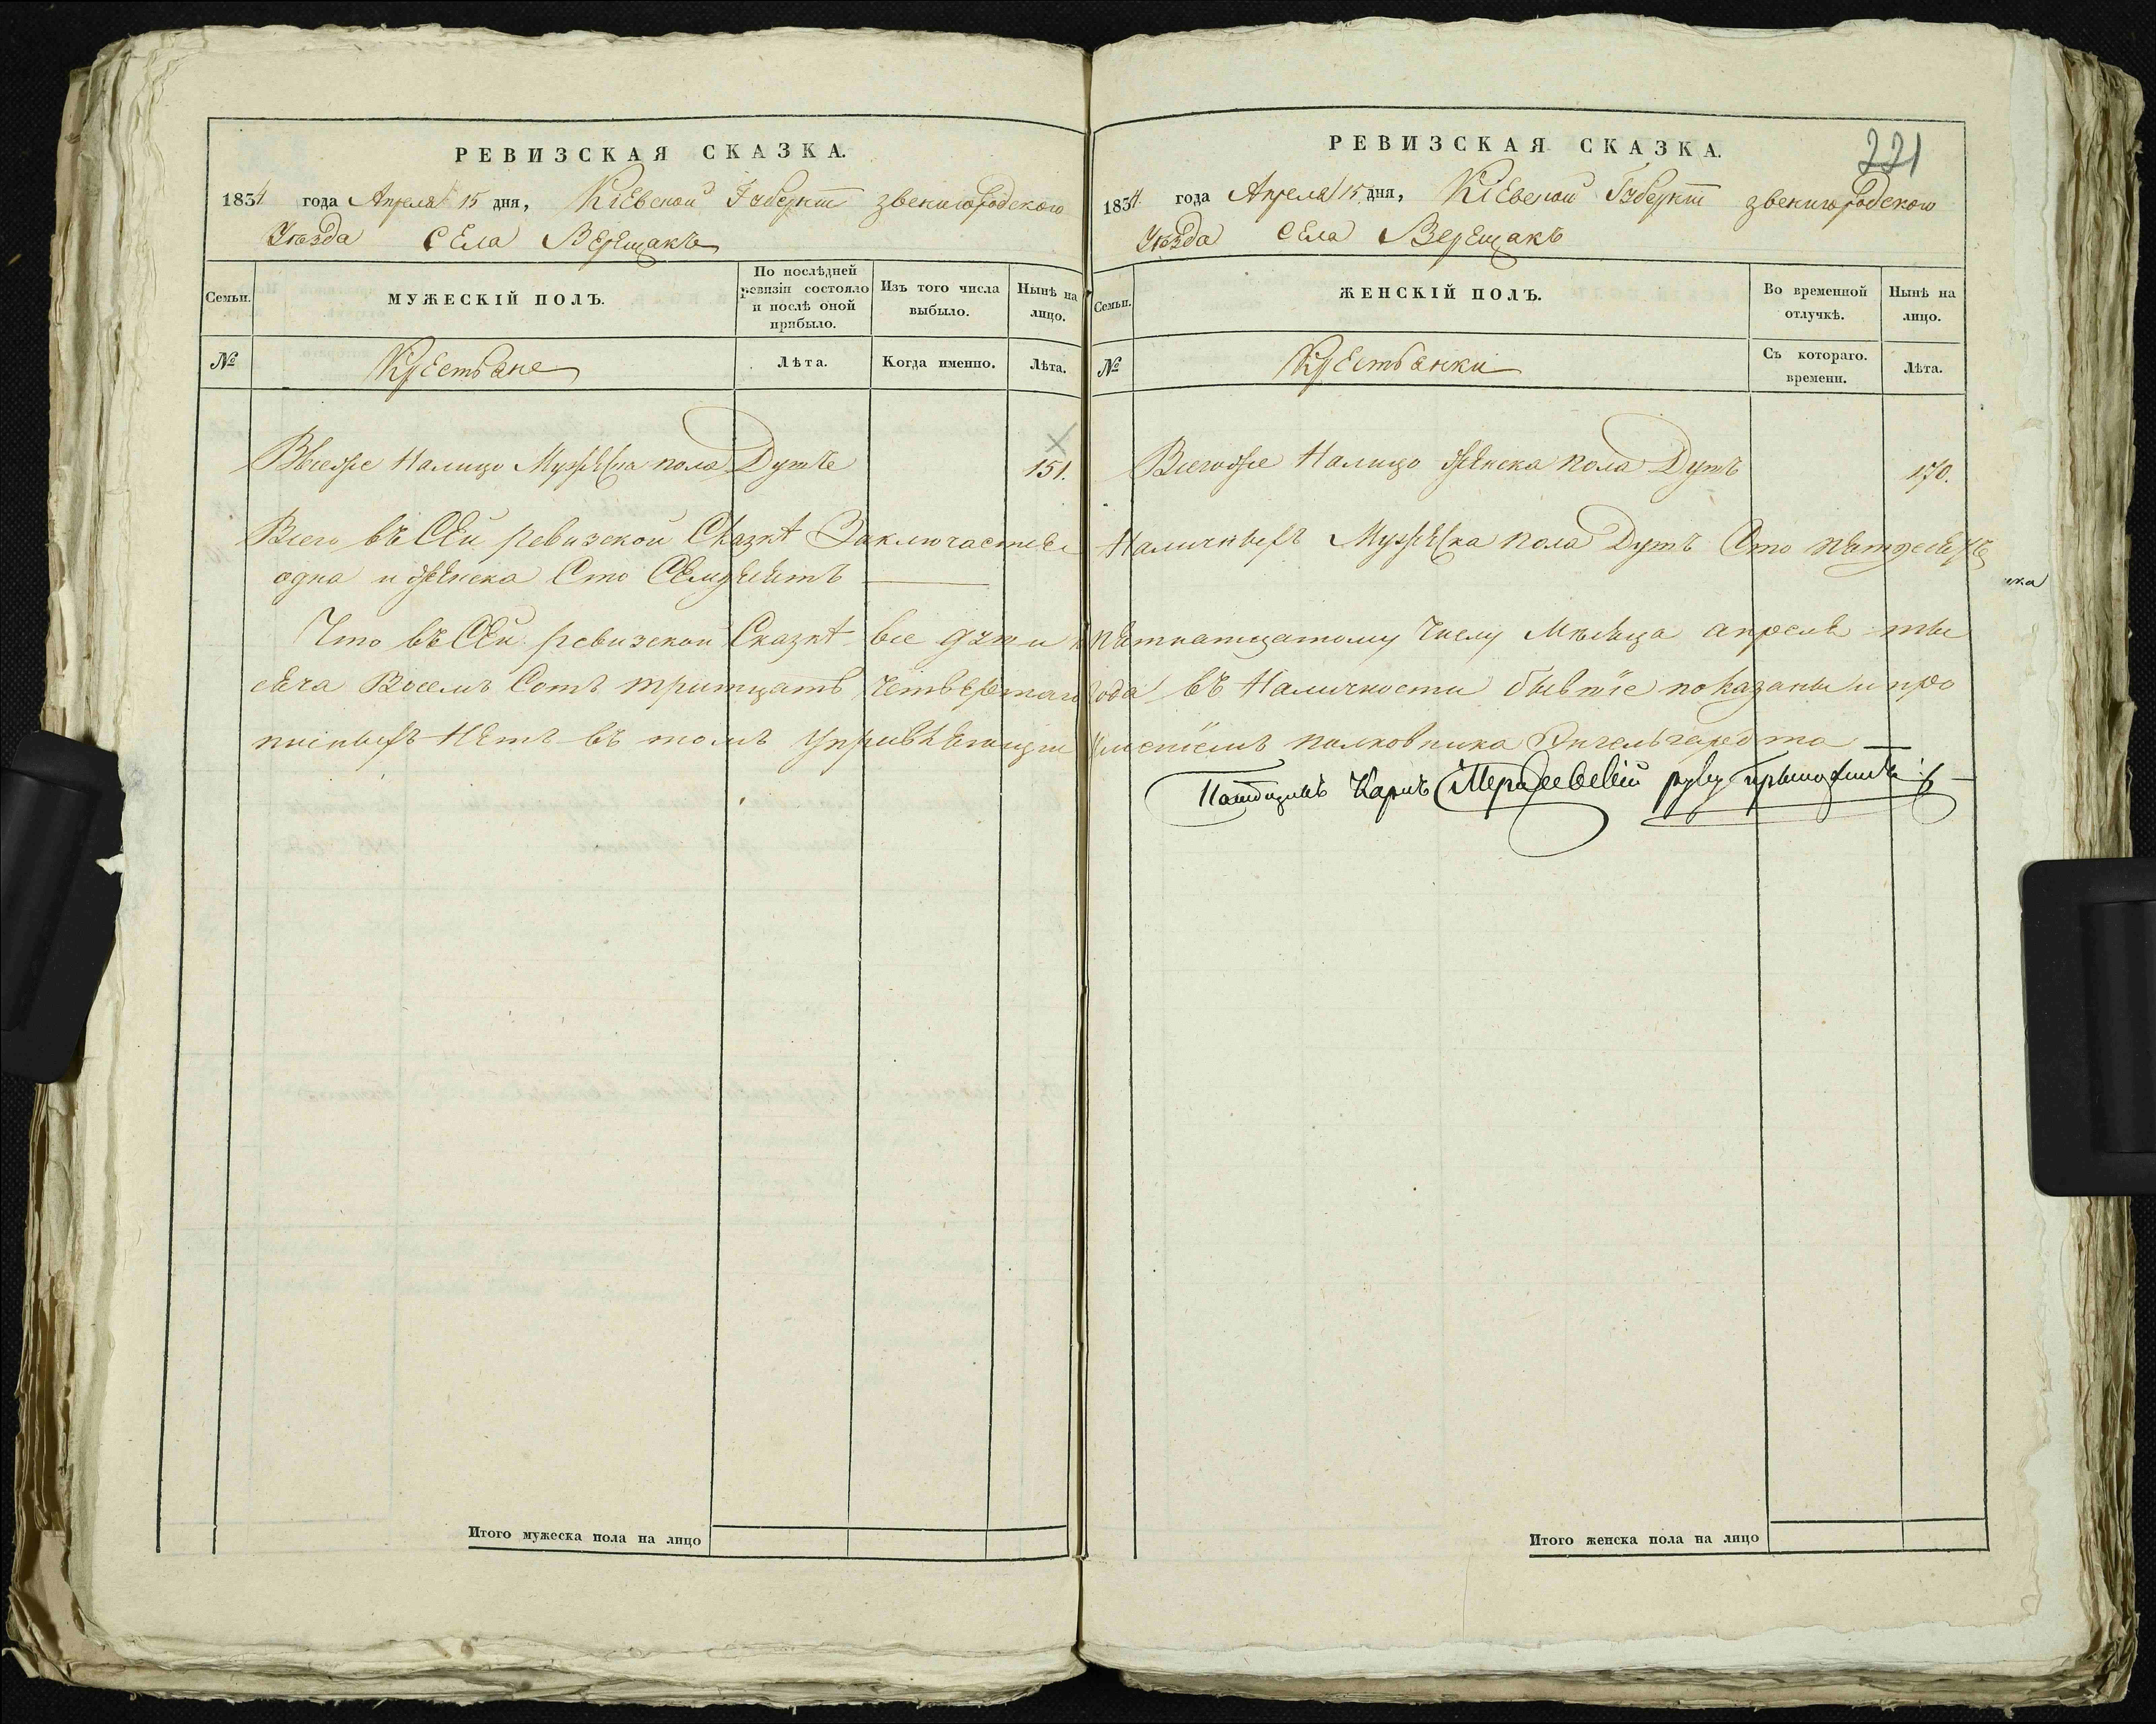 РЕВИЗСКАЯ СКАЗКА.
1834 года Апреля 15 дня, Кіевской Губерніи звенигородского
Уезда села Верещакъ
Семьи.
МУЖЕСКІЙ ПОЛЪ.
По послѣдней
ревизіи состояло
и послѣ оной
прибыло.
Изъ того числа
выбыло.
Нынѣ на
лицо.
№
Крестьяне
Лѣта.
Когда именно.
Лѣта.
Налицо Мужеска пола Душъ 151.
Всего въ сей ревизской Сказкѣ Заключается
одна и женска Сто Семдесятъ
Что въ сей ревизской Сказкѣ все души к
сяча Восемъ Сотъ тритцать четвертаго
нетъ въ томъ
Итого мужеска пола на лицо
РЕВИЗСКАЯ СКАЗКА.
221
1834 года Апреля 15 дня, Кіевской Губерніи звенигородского
Уезда села Верещакъ
Семьи.
ЖЕНСКІЙ ПОЛЪ.
Во временной
отлучкѣ.
Нынѣ на
лицо.
№
Крестьянки
Съ котораго.
времени.
Лѣта.
Всегоже Налицо женска пола Душъ 170.
Наличныхъ Мужеска пола Душъ Сто
пятнатцатому числу Месяца апреля ты
года въ Наличности бывшіе показаны и про
именіемъ полковника Энгельгардта
руку
Итого женска пола на лицо